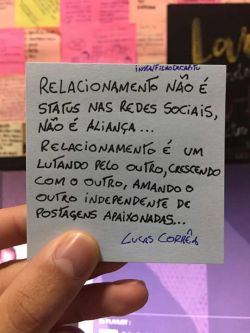 RELACIONAMENTO NÃO É
STATUS NAS REDES SOCIAIS,
NÃO É ALIANÇA...
RELACIONAMENTO É UM
LUTANDO PELO OUTRO, CRESCENDO
COM O OUTRO, AMANDO O
OUTRO INDEPENDENTE DE
POSTAGENS APAIXONADAS...
LUCAS CORRÊA